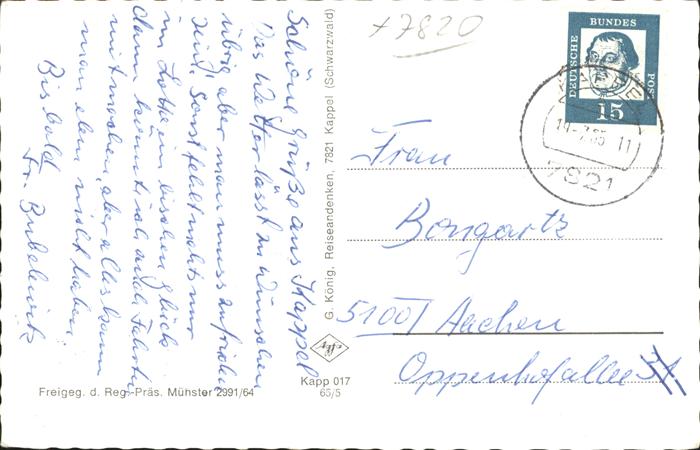 +7820
DEUTSCHE
BUNDES
POST
15
7821
Schöne Grüße aus Kappel
Das Wetter lässt zu wünschen
übrig aber man muss zufrieden
sein. Sonst fehlt nichts nur
im Lotto ein bischen Glück
dann könnte ich viele Fahrten
mitmachen, aber alles kann
man eben nicht haben.
Bis bald
Fr.
G. König, Reiseandenken, 7821 Kappel (Schwarzwald)
Frau
Bongartz
5100 Aachen
Oppenhofallee
Kapp 017
65/5
Freigeg. d. Reg.-Präs. Münster 2991/64